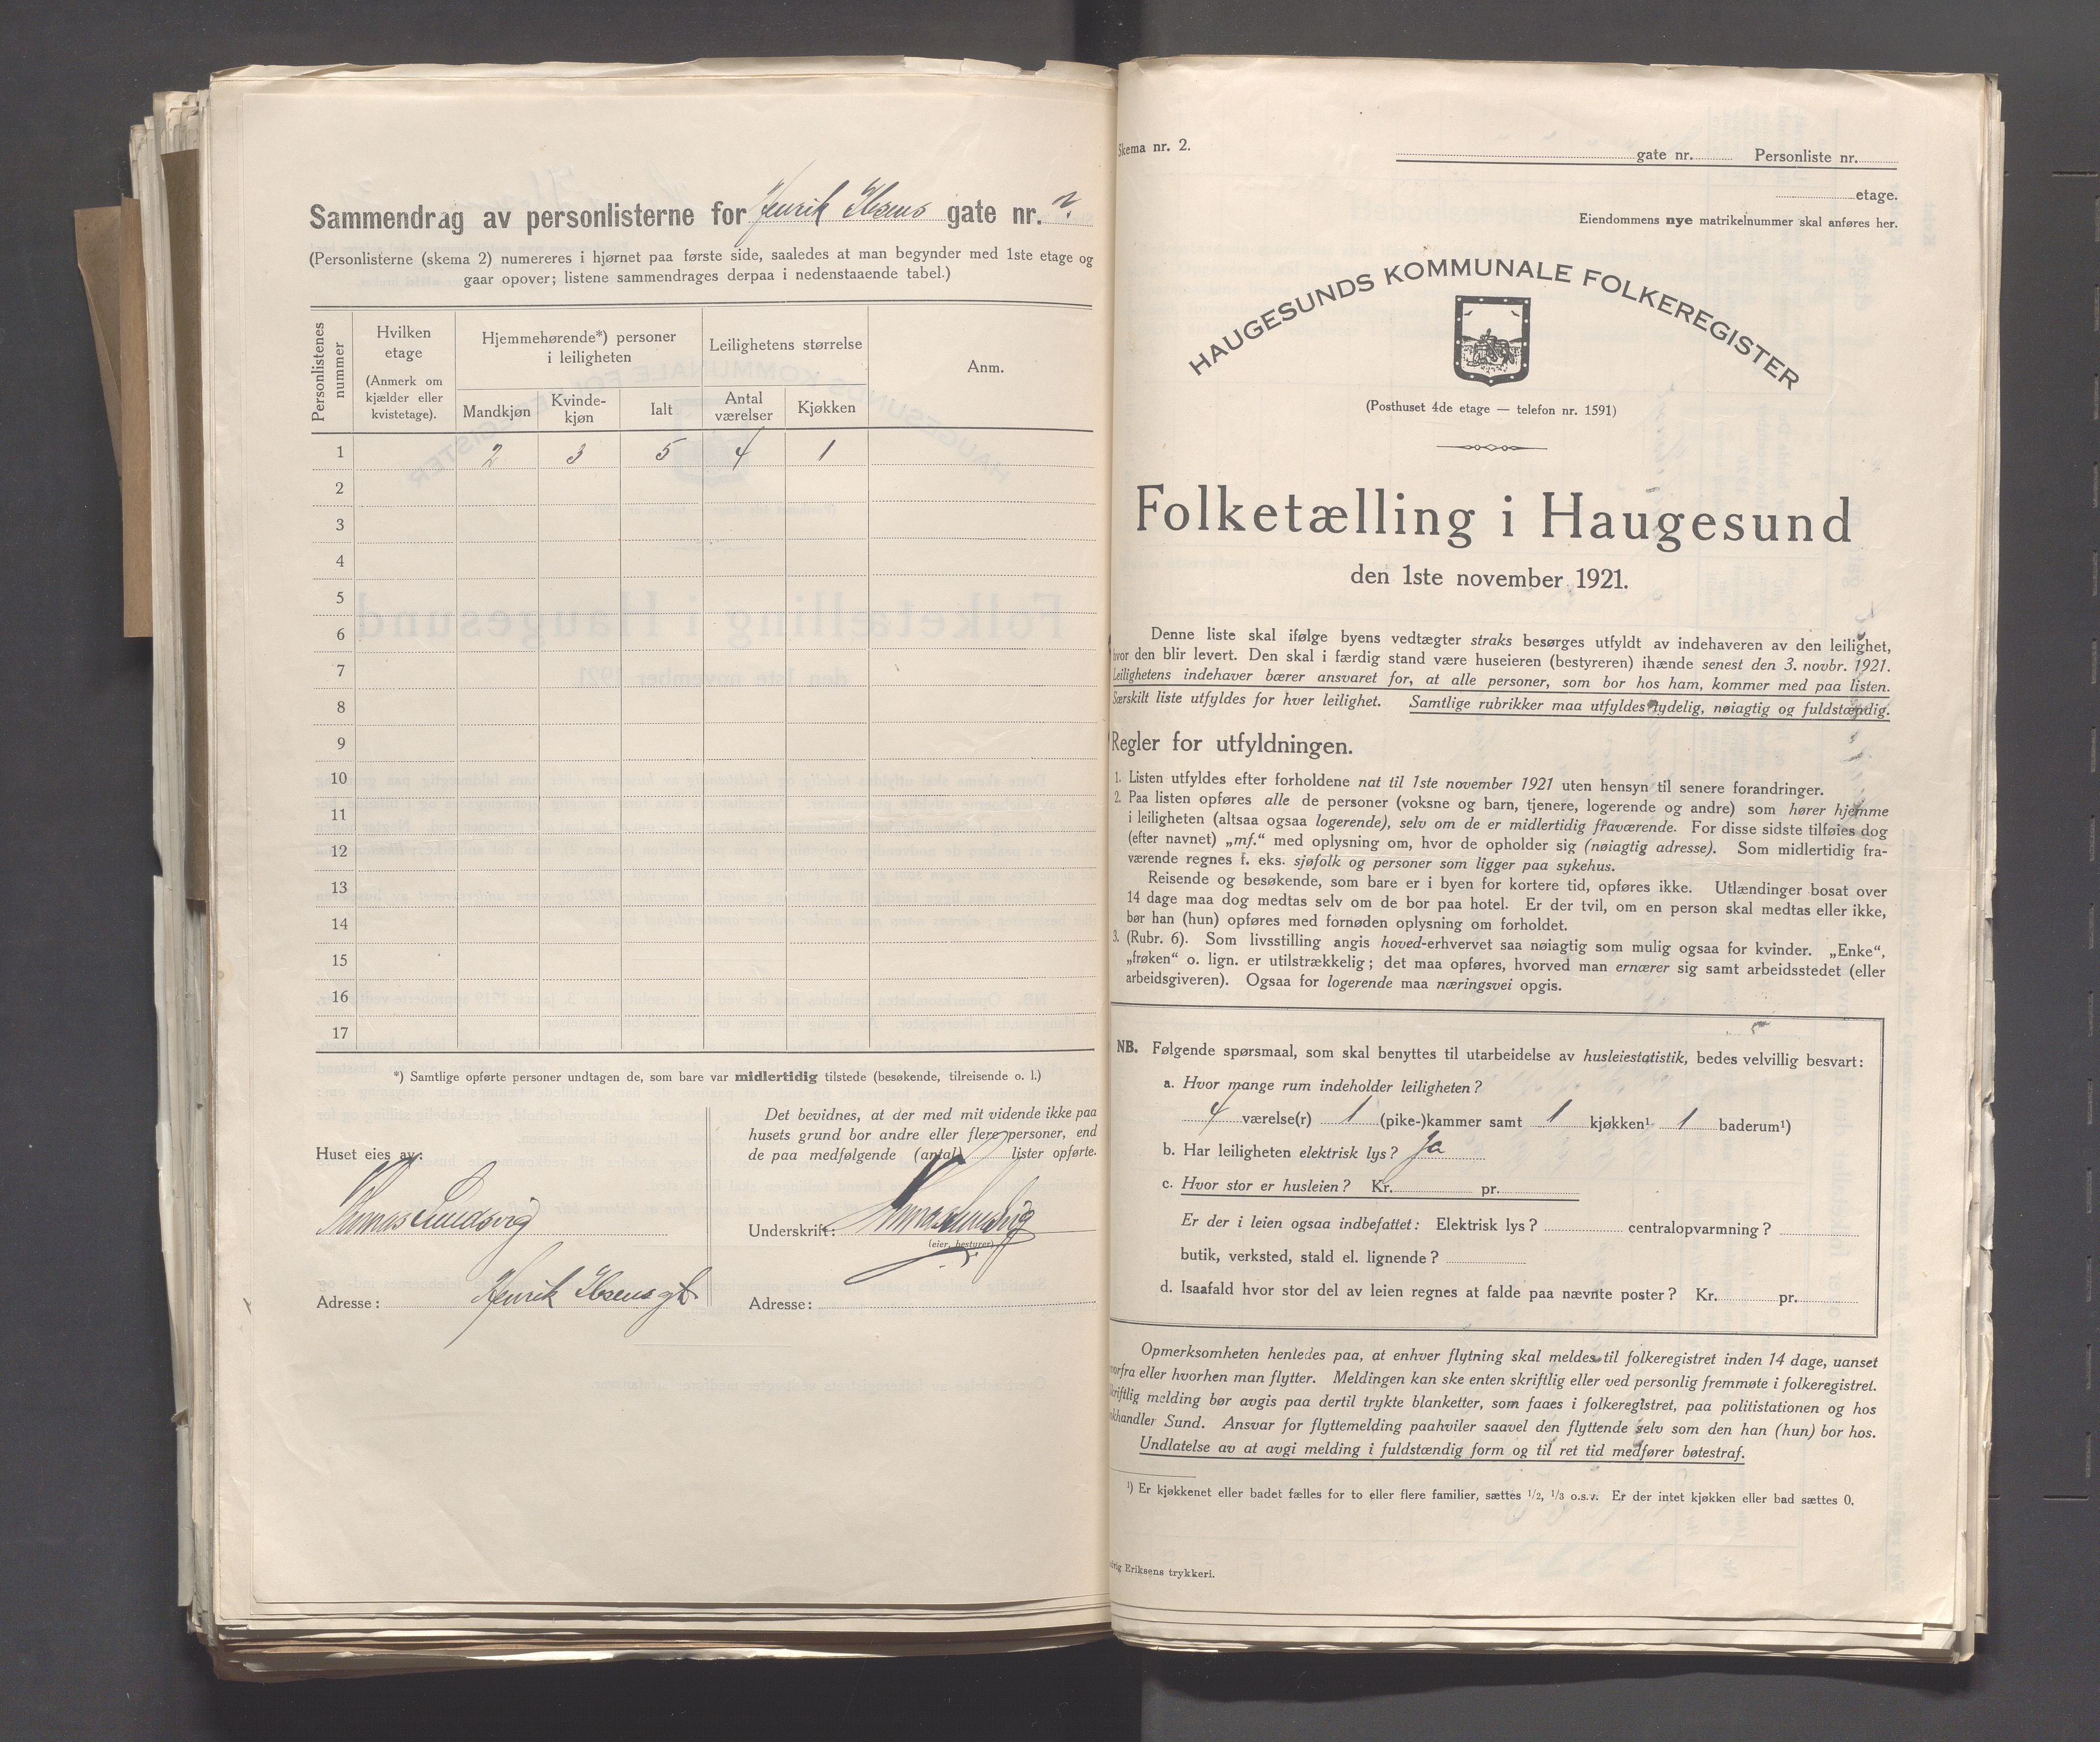 Sammendrag av personlisterne for Henrik Ibsens gate nr. 2.
(Personlisterne (skema 2) numereres i hjørnet paa første side, saaledes at man begynder med 1ste etage og
gaar opover; listene sammendrages derpaa i nedenstaaende tabel.)
Personlistenes nummer
Hvilken etage (Anmerk om kjælder eller kvistetage).
Hjemmehørende*) personer i leiligheten
Mandkjøn
Kvindekjøn
Ialt
Leilighetens størrelse
Antal værelser
Kjøkken
Anm.
1 2 3 5 4 1
2
3
4
5
6
7
8
9
10
11
12
13
14
15
16
17
*) Samtlige opførte personer undtagen de, som bare var midlertidig tilstede (besøkende, tilreisende o. l.)
Huset eies av:
Thomas Sundsvig
Adresse: Henrik Ibsens gt
Det bevidnes, at der med mit vidende ikke paa
husets grund bor andre eller flere personer, end
de paa medfølgende (antal) lister opførte.
Underskrift: Thomas Sundsvig
(eier, bestyrer)
Adresse:
Skema nr. 2.
gate nr. Personliste nr.
etage.
Eiendommens nye matrikelnummer skal anføres her.
HAUGESUNDS KOMMUNALE FOLKEREGISTER
(Posthuset 4de etage — telefon nr. 1591)
Folketælling i Haugesund
den 1ste november 1921.
Denne liste skal ifølge byens vedtægter straks besørges utfyldt av indehaveren av den leilighet,
hvor den blir levert. Den skal i færdig stand være huseieren (bestyreren) ihænde senest den 3. novbr. 1921.
Leilighetens indehaver bærer ansvaret for, at alle personer, som bor hos ham, kommer med paa listen.
Særskilt liste utfyldes for hver leilighet. Samtlige rubrikker maa utfyldes tydelig, nøiagtig og fuldstændig.
Regler for utfyldningen.
1. Listen utfyldes efter forholdene nat til 1ste november 1921 uten hensyn til senere forandringer.
2. Paa listen opføres alle de personer (voksne og barn, tjenere, logerende og andre) som hører hjemme
i leiligheten (altsaa ogsaa logerende), selv om de er midlertidig fraværende. For disse sidste tilføies dog
(efter navnet) „mf.“ med oplysning om, hvor de opholder sig (nøiagtig adresse). Som midlertidig fra-
værende regnes f. eks. sjøfolk og personer som ligger paa sykehus.
Reisende og besøkende, som bare er i byen for kortere tid, opføres ikke. Utlændinger bosat over
14 dage maa dog medtas selv om de bor paa hotel. Er der tvil, om en person skal medtas eller ikke,
bør han (hun) opføres med fornøden oplysning om forholdet.
3. (Rubr. 6). Som livsstilling angis hoved-erhvervet saa nøiagtig som mulig ogsaa for kvinder. „Enke“,
„frøken“ o. lign. er utilstrækkelig; det maa opføres, hvorved man ernærer sig samt arbeidsstedet (eller
arbeidsgiveren). Ogsaa for logerende maa næringsvei opgis.
NB. Følgende spørsmaal, som skal benyttes til utarbeidelse av husleiestatistik, bedes velvillig besvart:
a. Hvor mange rum indeholder leiligheten?
4 værelse(r) 1 (pike-)kammer samt 1 kjøkken¹ 1 baderum¹)
b. Har leiligheten elektrisk lys? Ja
c. Hvor stor er husleien? Kr. pr.
Er der i leien ogsaa indbefattet: Elektrisk lys? centralopvarmning?
butik, verksted, stald el. lignende?
d. Isaafald hvor stor del av leien regnes at falde paa nævnte poster? Kr. pr.
Opmerksomheten henledes paa, at enhver flytning skal meldes til folkeregistret inden 14 dage, uanset
orfra eller hvorhen man flytter. Meldingen kan ske enten skriftlig eller ved personlig fremmøte i folkeregistret.
kriftlig melding bør avgis paa dertil trykte blanketter, som faaes i folkeregistret, paa politistationen og hos
okhandler Sund. Ansvar for flyttemelding paahviler saavel den flyttende selv som den han (hun) bor hos.
Undlatelse av at avgi melding i fuldstændig form og til ret tid medfører bøtestraf.
¹) Er kjøkkenet eller badet fælles for to eller flere familier, sættes 1/2, 1/3 o.s.v. Er der intet kjøkken eller bad sættes 0.
Eriksens trykkeri.